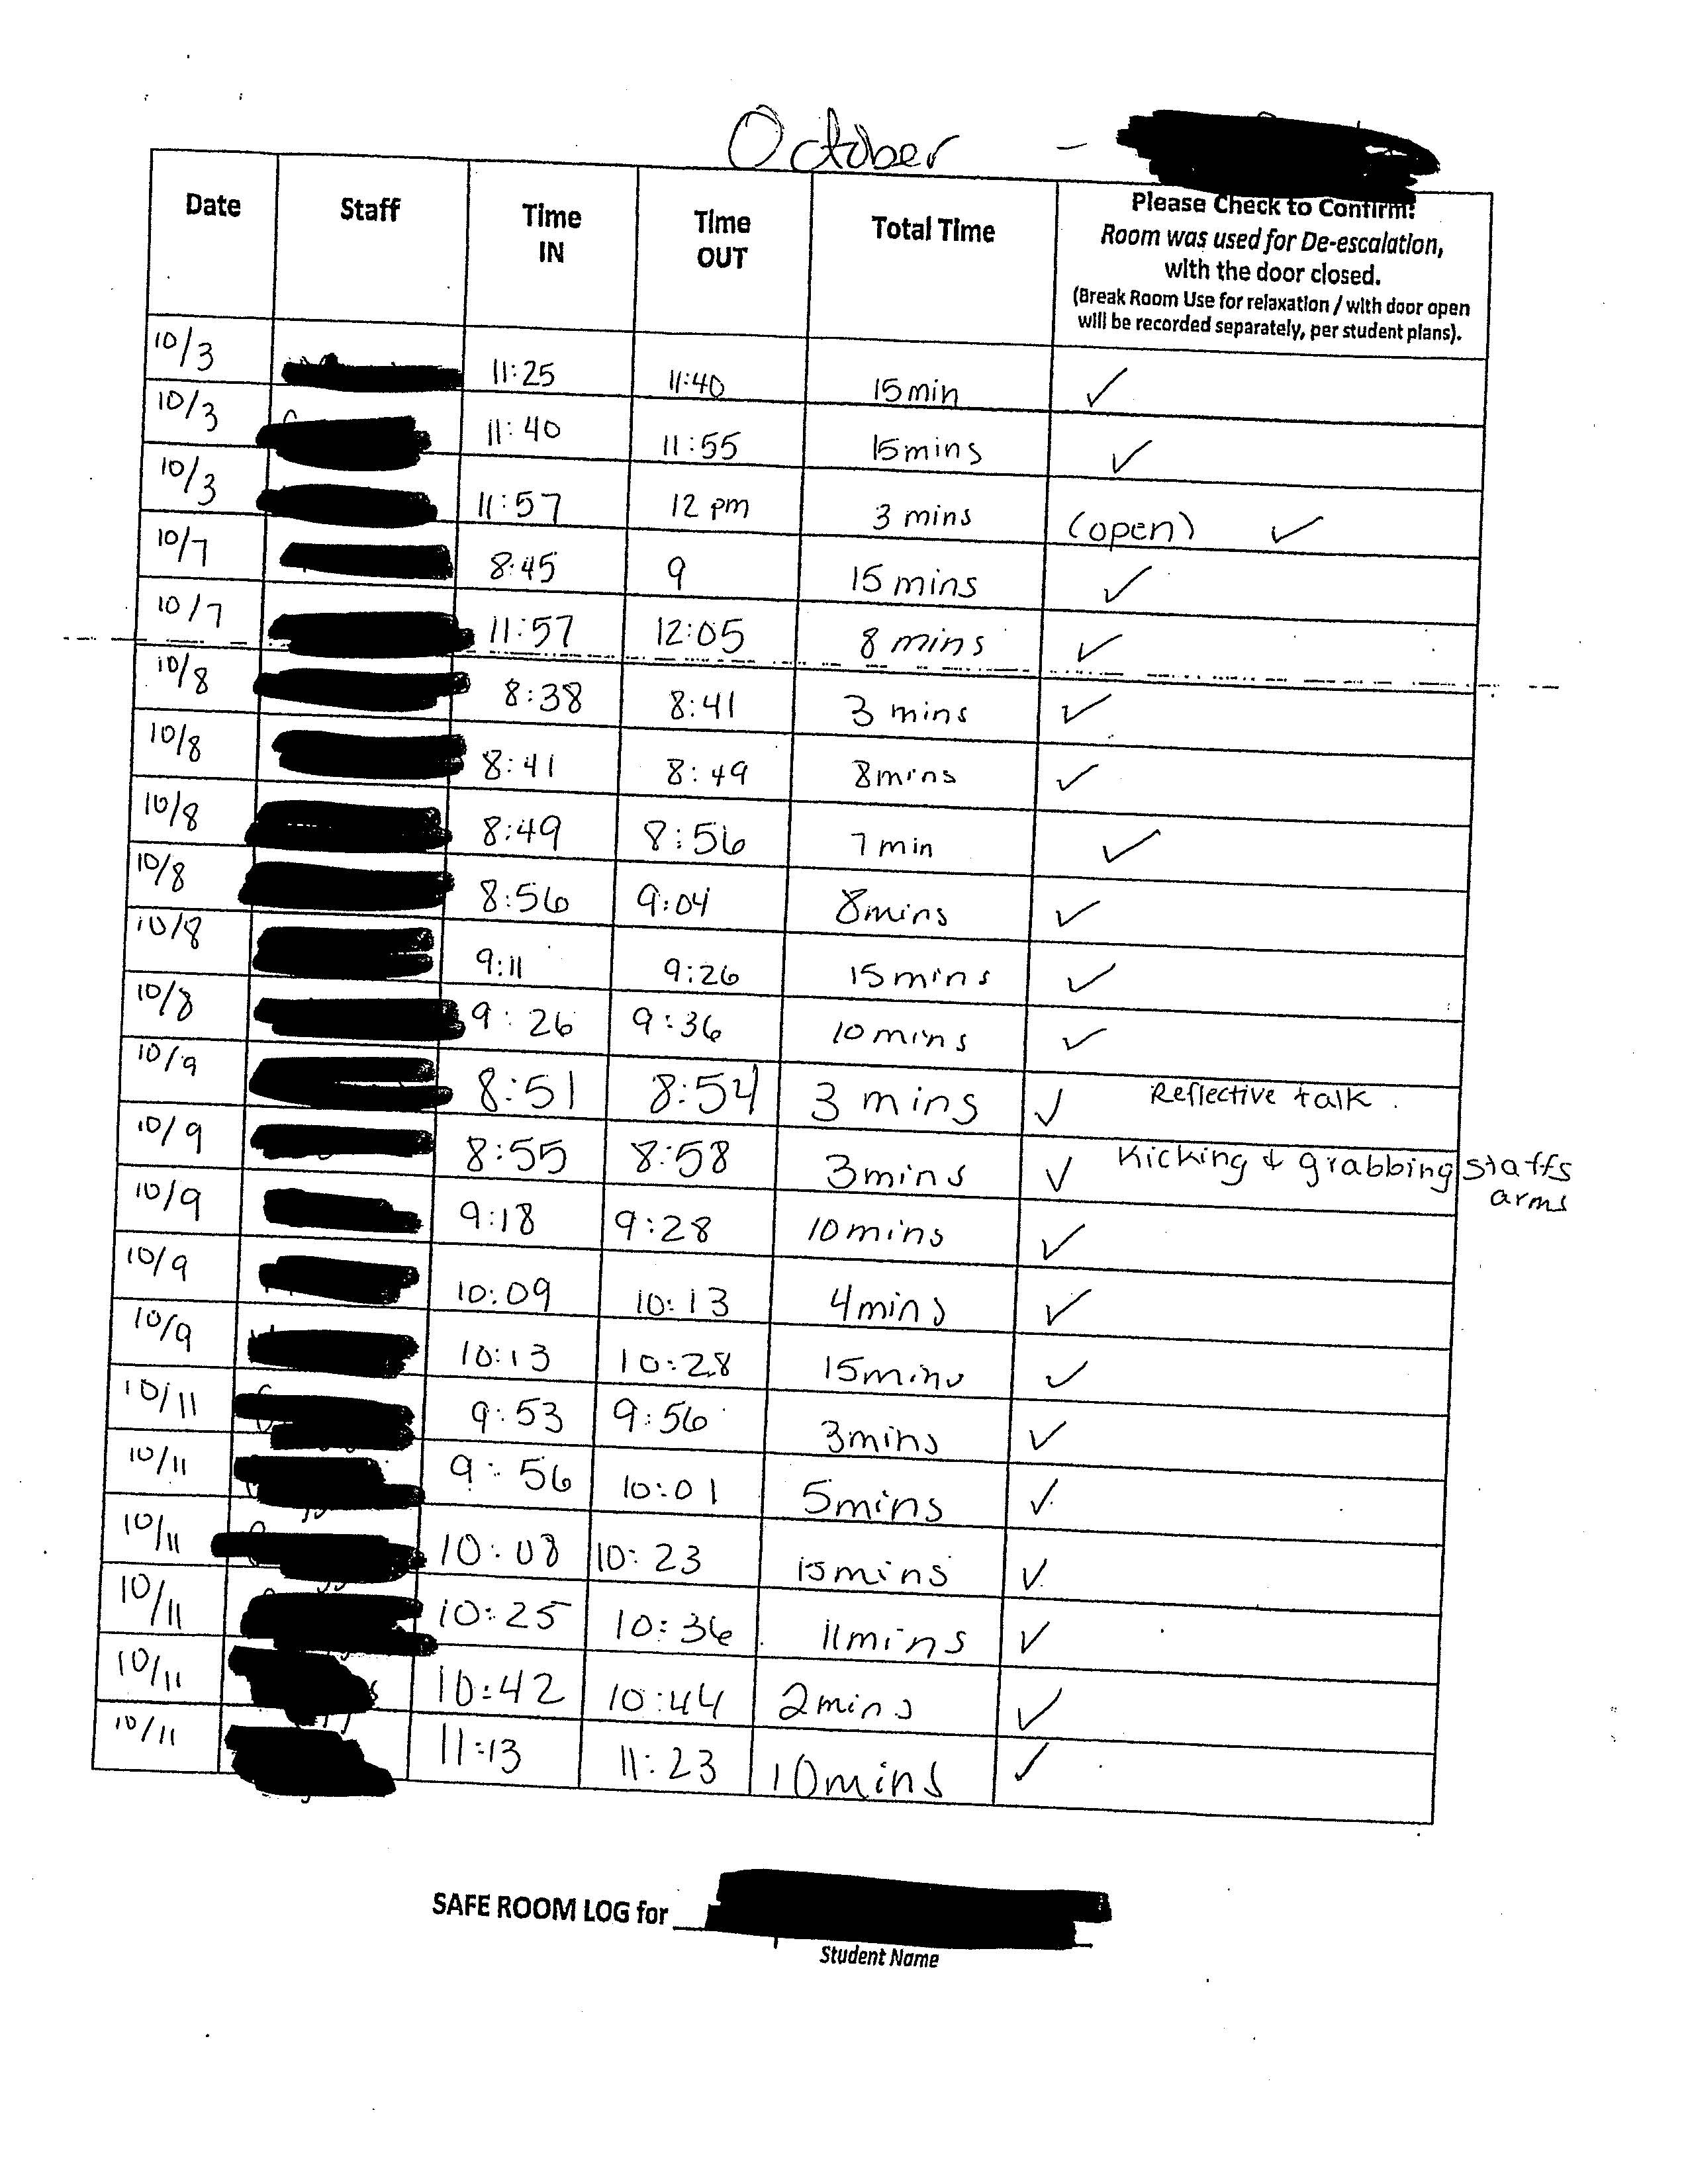 October -
Date Staff Time IN Time OUT Total Time Please Check to Confirm:
Room was used for De-escalation,
with the door closed.
(Break Room Use for relaxation / with door open
will be recorded separately, per student plans).
10/3 11:25 11:40 15 min ✓
10/3 11:40 11:55 15 mins ✓
10/3 11:57 12 pm 3 mins (open) ✓
10/7 8:45 9 15 mins ✓
10/7 11:57 12:05 8 mins ✓
10/8 8:38 8:41 3 mins ✓
10/8 8:41 8:49 8 mins ✓
10/8 8:49 8:56 7 min ✓
10/8 8:56 9:04 8 mins ✓
10/8 9:11 9:26 15 mins ✓
10/8 9:26 9:36 10 mins ✓
10/9 8:51 8:54 3 mins ✓ Reflective talk.
10/9 8:55 8:58 3 mins ✓ Kicking & grabbing staffs
arms
10/9 9:18 9:28 10 mins ✓
10/9 10:09 10:13 4 mins ✓
10/9 10:13 10:28 15 mins ✓
10/11 9:53 9:56 3 mins ✓
10/11 9:56 10:01 5 mins ✓
10/11 10:08 10:23 15 mins ✓
10/11 10:25 10:36 11 mins ✓
10/11 10:42 10:44 2 mins ✓
10/11 11:13 11:23 10 mins ✓
SAFE ROOM LOG for
Student Name